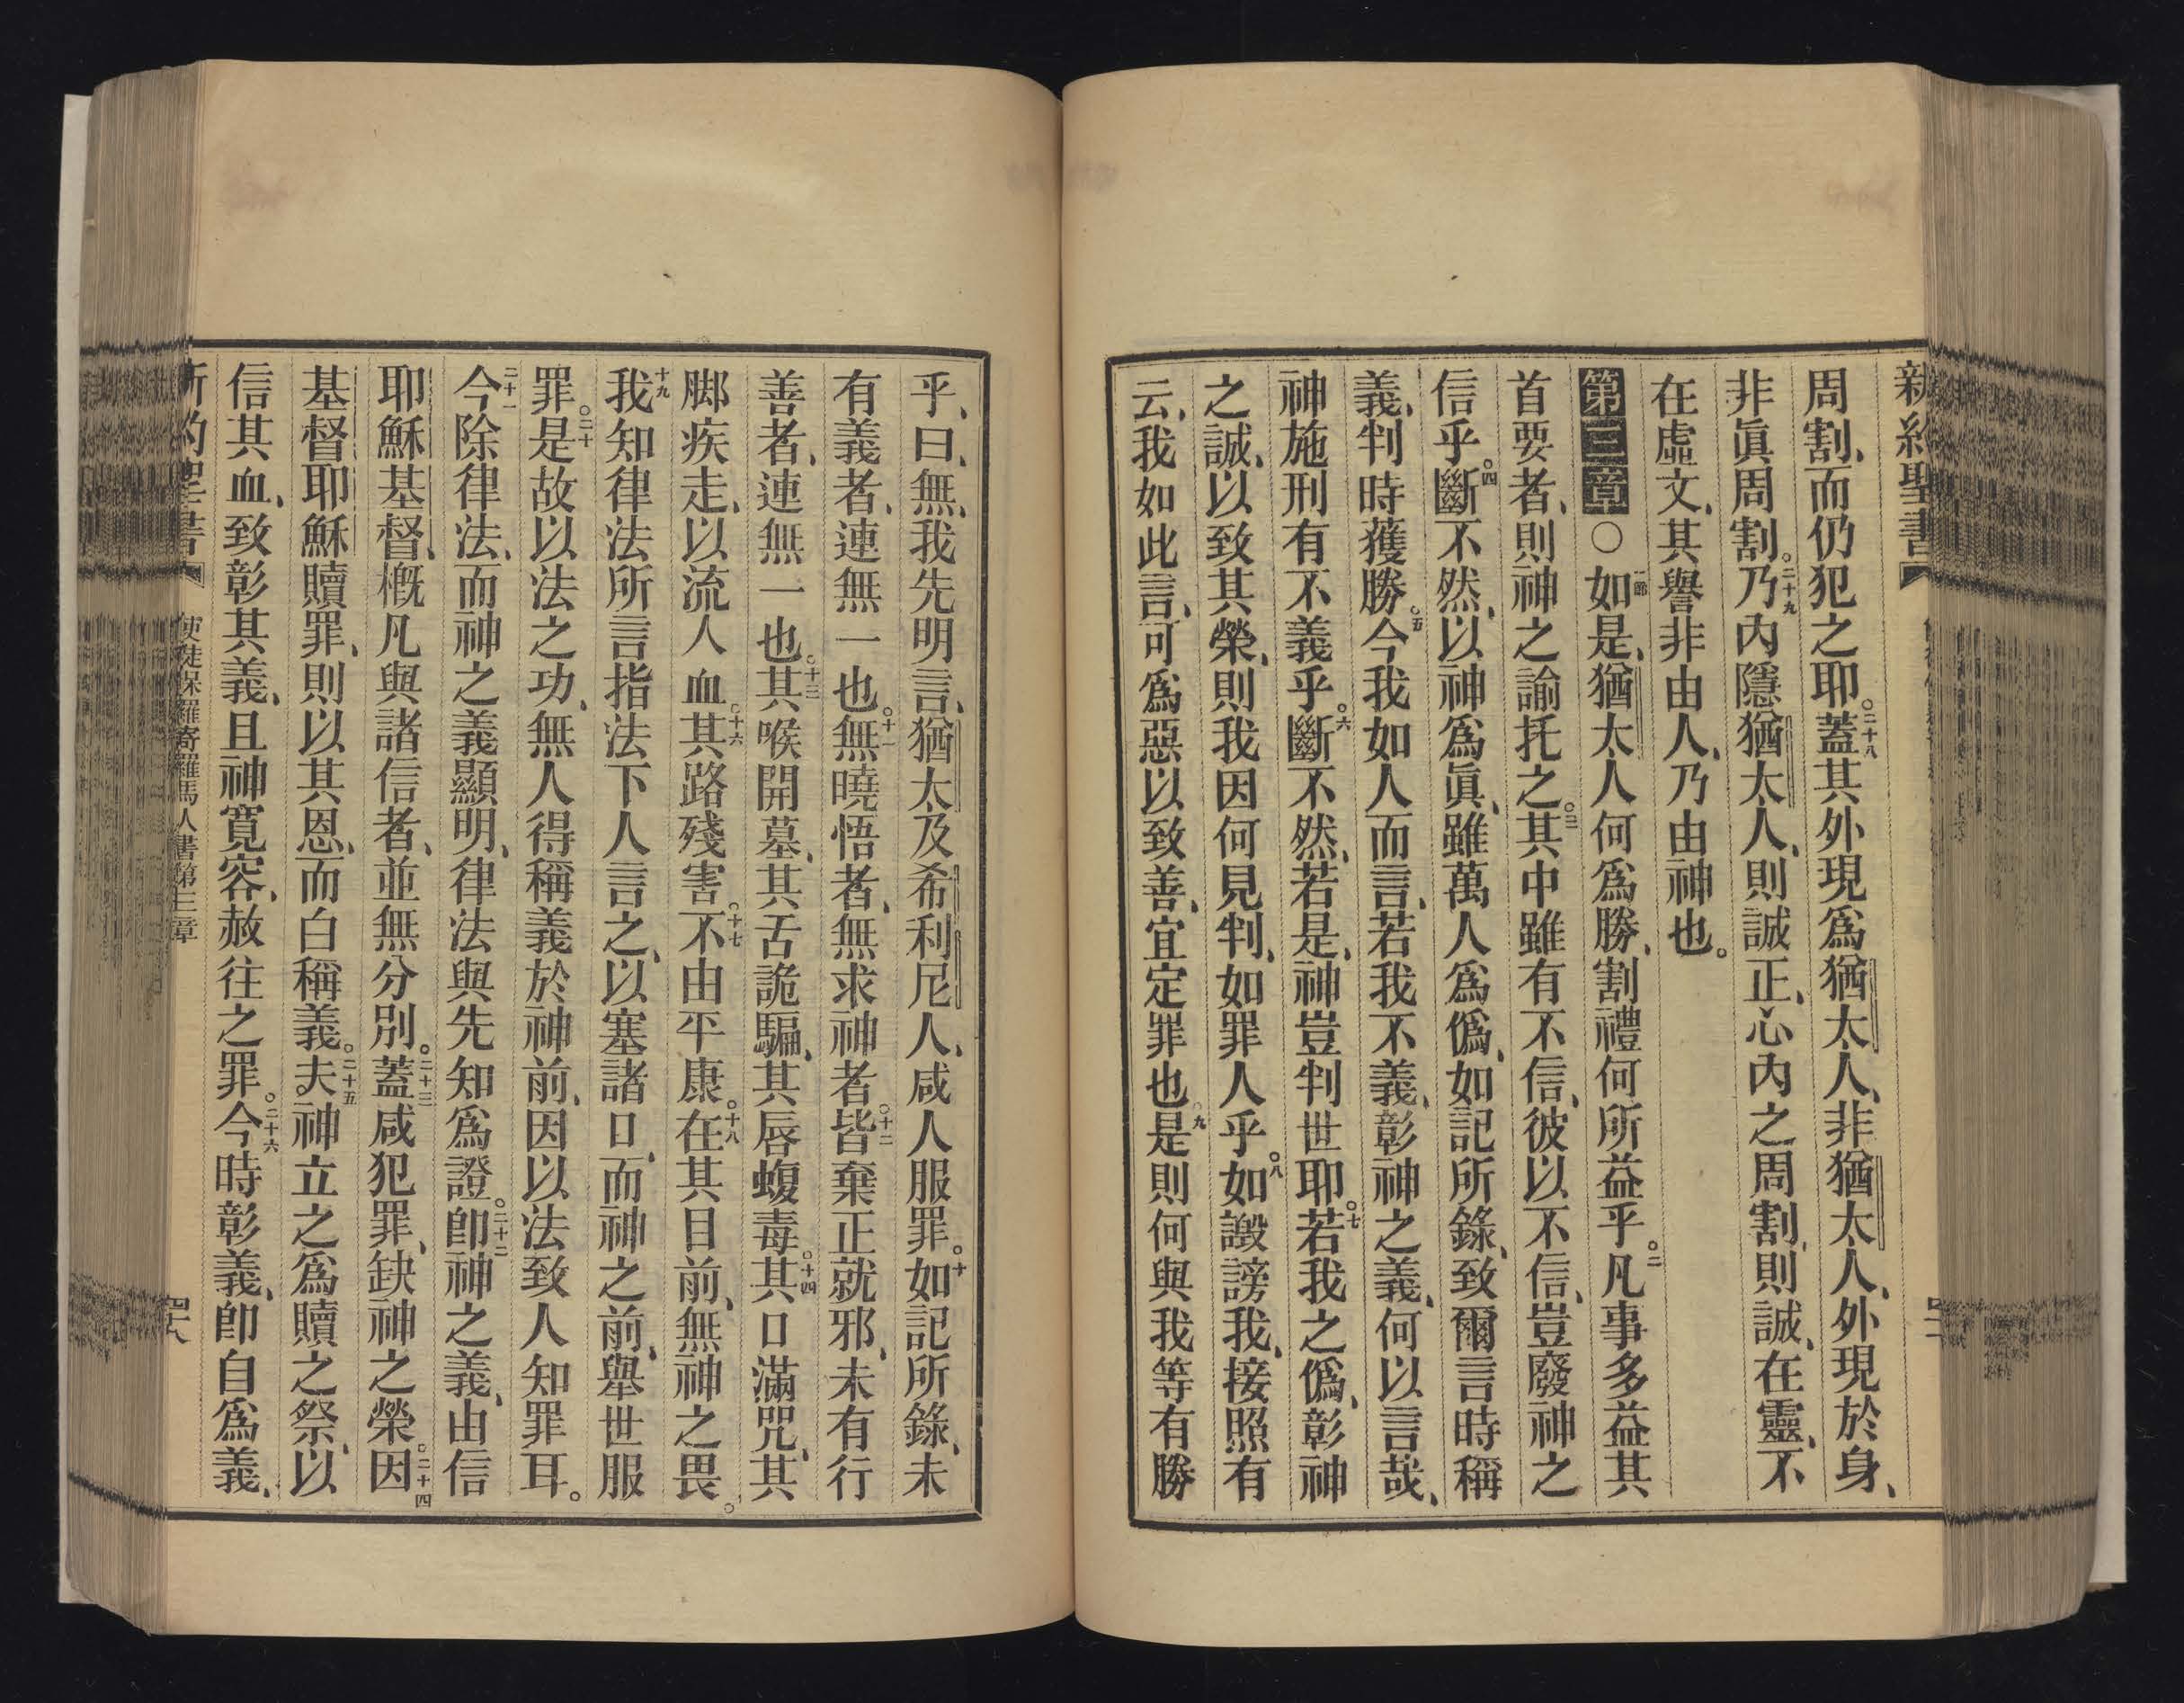 新約聖書
周割、而仍犯之耶。二十八蓋其外現爲猶太人、非猶太人、外現於身、
非眞周割。二十九乃內隱猶太人、則誠正、心內之周割、則誠、在靈、不
在虛文、其譽非由人、乃由神也。
第三章○一節如是、猶太人何爲勝、割禮何所益乎。二凡事多益其
首要者、則神之諭托之。三其中雖有不信、彼以不信、豈廢神之
信乎。四斷不然、以神爲眞、雖萬人爲僞、如記所錄、致爾言時稱
義、判時獲勝。五今我如人而言、若我不義、彰神之義、何以言哉、
神施刑有不義乎。六斷不然、若是、神豈判世耶。七若我之僞、彰神
之誠、以致其榮、則我因何見判、如罪人乎。八如譭謗我、接照有
云、我如此言、可爲惡以致善、宜定罪也。九是則何與我等有勝
乎、曰、無、我先明言、猶太及希利尼人、咸人服罪。十如記所錄、未
有義者、連無一也。十一無曉悟者、無求神者。十二皆棄正就邪、未有行
善者、連無一也。十三其喉開墓、其舌詭騙、其唇蝮毒。十四其口滿咒、其
脚疾走、以流人血。十六其路殘害。十七不由平康。十八在其目前、無神之畏。
十九我知律法所言指法下人言之、以塞諸口、而神之前、舉世服
罪。二十是故以法之功、無人得稱義於神前、因以法致人知罪耳。
二十一今除律法、而神之義顯明、律法與先知爲證。二十二卽神之義、由信
耶穌基督、概凡與諸信者、並無分別。二十三蓋咸犯罪、缺神之榮。二十四因
基督耶穌贖罪、則以其恩、而白稱義。二十五夫神立之爲贖之祭、以
信其血、致彰其義、且神寬容、赦往之罪。二十六今時彰義、卽自爲義、
新約聖書
使徒保羅寄羅馬人書第三章